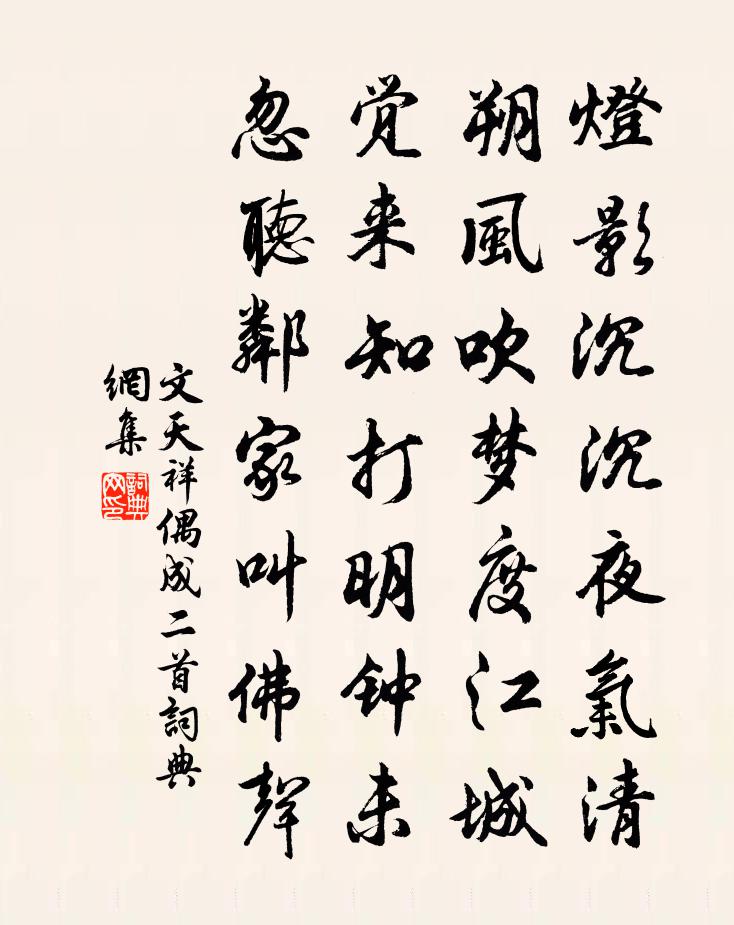 燈影沉沉夜氣清
朔風吹梦度江城
觉来知打明钟未
忽聴鄰家叫佛聲
文天祥偶成二首詞典
網集
詞典
网印